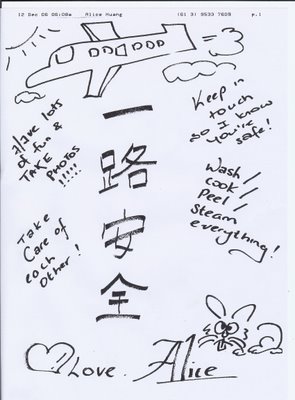 12 Dec 06 06:08a Alice Huang (61 3) 9533 7609 p.1
Have lots
of fun &
TAKE
PHOTOS
!!!!!
Keep in
touch
so I know
you're
safe!
一路安全
Wash/
cook/
Peel/
Steam
everything!
Take
Care of
each
other!
Love. Alice